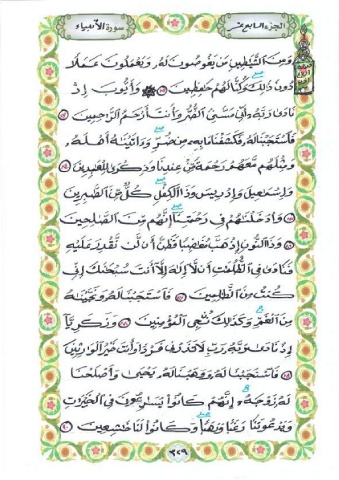 الجزء السابع عشر
سورة الأنبياء
وَمِنَ الشَّيَاطِينِ مَن يَغُوصُونَ لَهُ وَيَعْمَلُونَ عَمَلًا
دُونَ ذَٰلِكَ وَكُنَّا لَهُمْ حَافِظِينَ ٨٢ وَأَيُّوبَ إِذْ
نَادَىٰ رَبَّهُ أَنِّي مَسَّنِيَ الضُّرُّ وَأَنتَ أَرْحَمُ الرَّاحِمِينَ ٨٣
فَاسْتَجَبْنَا لَهُ فَكَشَفْنَا مَا بِهِ مِن ضُرٍّ وَآتَيْنَاهُ أَهْلَهُ
وَمِثْلَهُم مَّعَهُمْ رَحْمَةً مِّنْ عِندِنَا وَذِكْرَىٰ لِلْعَابِدِينَ ٨٤
وَإِسْمَاعِيلَ وَإِدْرِيسَ وَذَا الْكِفْلِ كُلٌّ مِّنَ الصَّابِرِينَ
٨٥ وَأَدْخَلْنَاهُمْ فِي رَحْمَتِنَا إِنَّهُم مِّنَ الصَّالِحِينَ
٨٦ وَذَا النُّونِ إِذ ذَّهَبَ مُغَاضِبًا فَظَنَّ أَن لَّن نَّقْدِرَ عَلَيْهِ
فَنَادَىٰ فِي الظُّلُمَاتِ أَن لَّا إِلَٰهَ إِلَّا أَنتَ سُبْحَانَكَ إِنِّي
كُنتُ مِنَ الظَّالِمِينَ ٨٧ فَاسْتَجَبْنَا لَهُ وَنَجَّيْنَاهُ
مِنَ الْغَمِّ وَكَذَٰلِكَ نُنجِي الْمُؤْمِنِينَ ٨٨ وَزَكَرِيَّا
إِذْ نَادَىٰ رَبَّهُ رَبِّ لَا تَذَرْنِي فَرْدًا وَأَنتَ خَيْرُ الْوَارِثِينَ
٨٩ فَاسْتَجَبْنَا لَهُ وَوَهَبْنَا لَهُ يَحْيَىٰ وَأَصْلَحْنَا
لَهُ زَوْجَهُ إِنَّهُمْ كَانُوا يُسَارِعُونَ فِي الْخَيْرَاتِ
وَيَدْعُونَنَا رَغَبًا وَرَهَبًا وَكَانُوا لَنَا خَاشِعِينَ ٩٠
٣٢٩